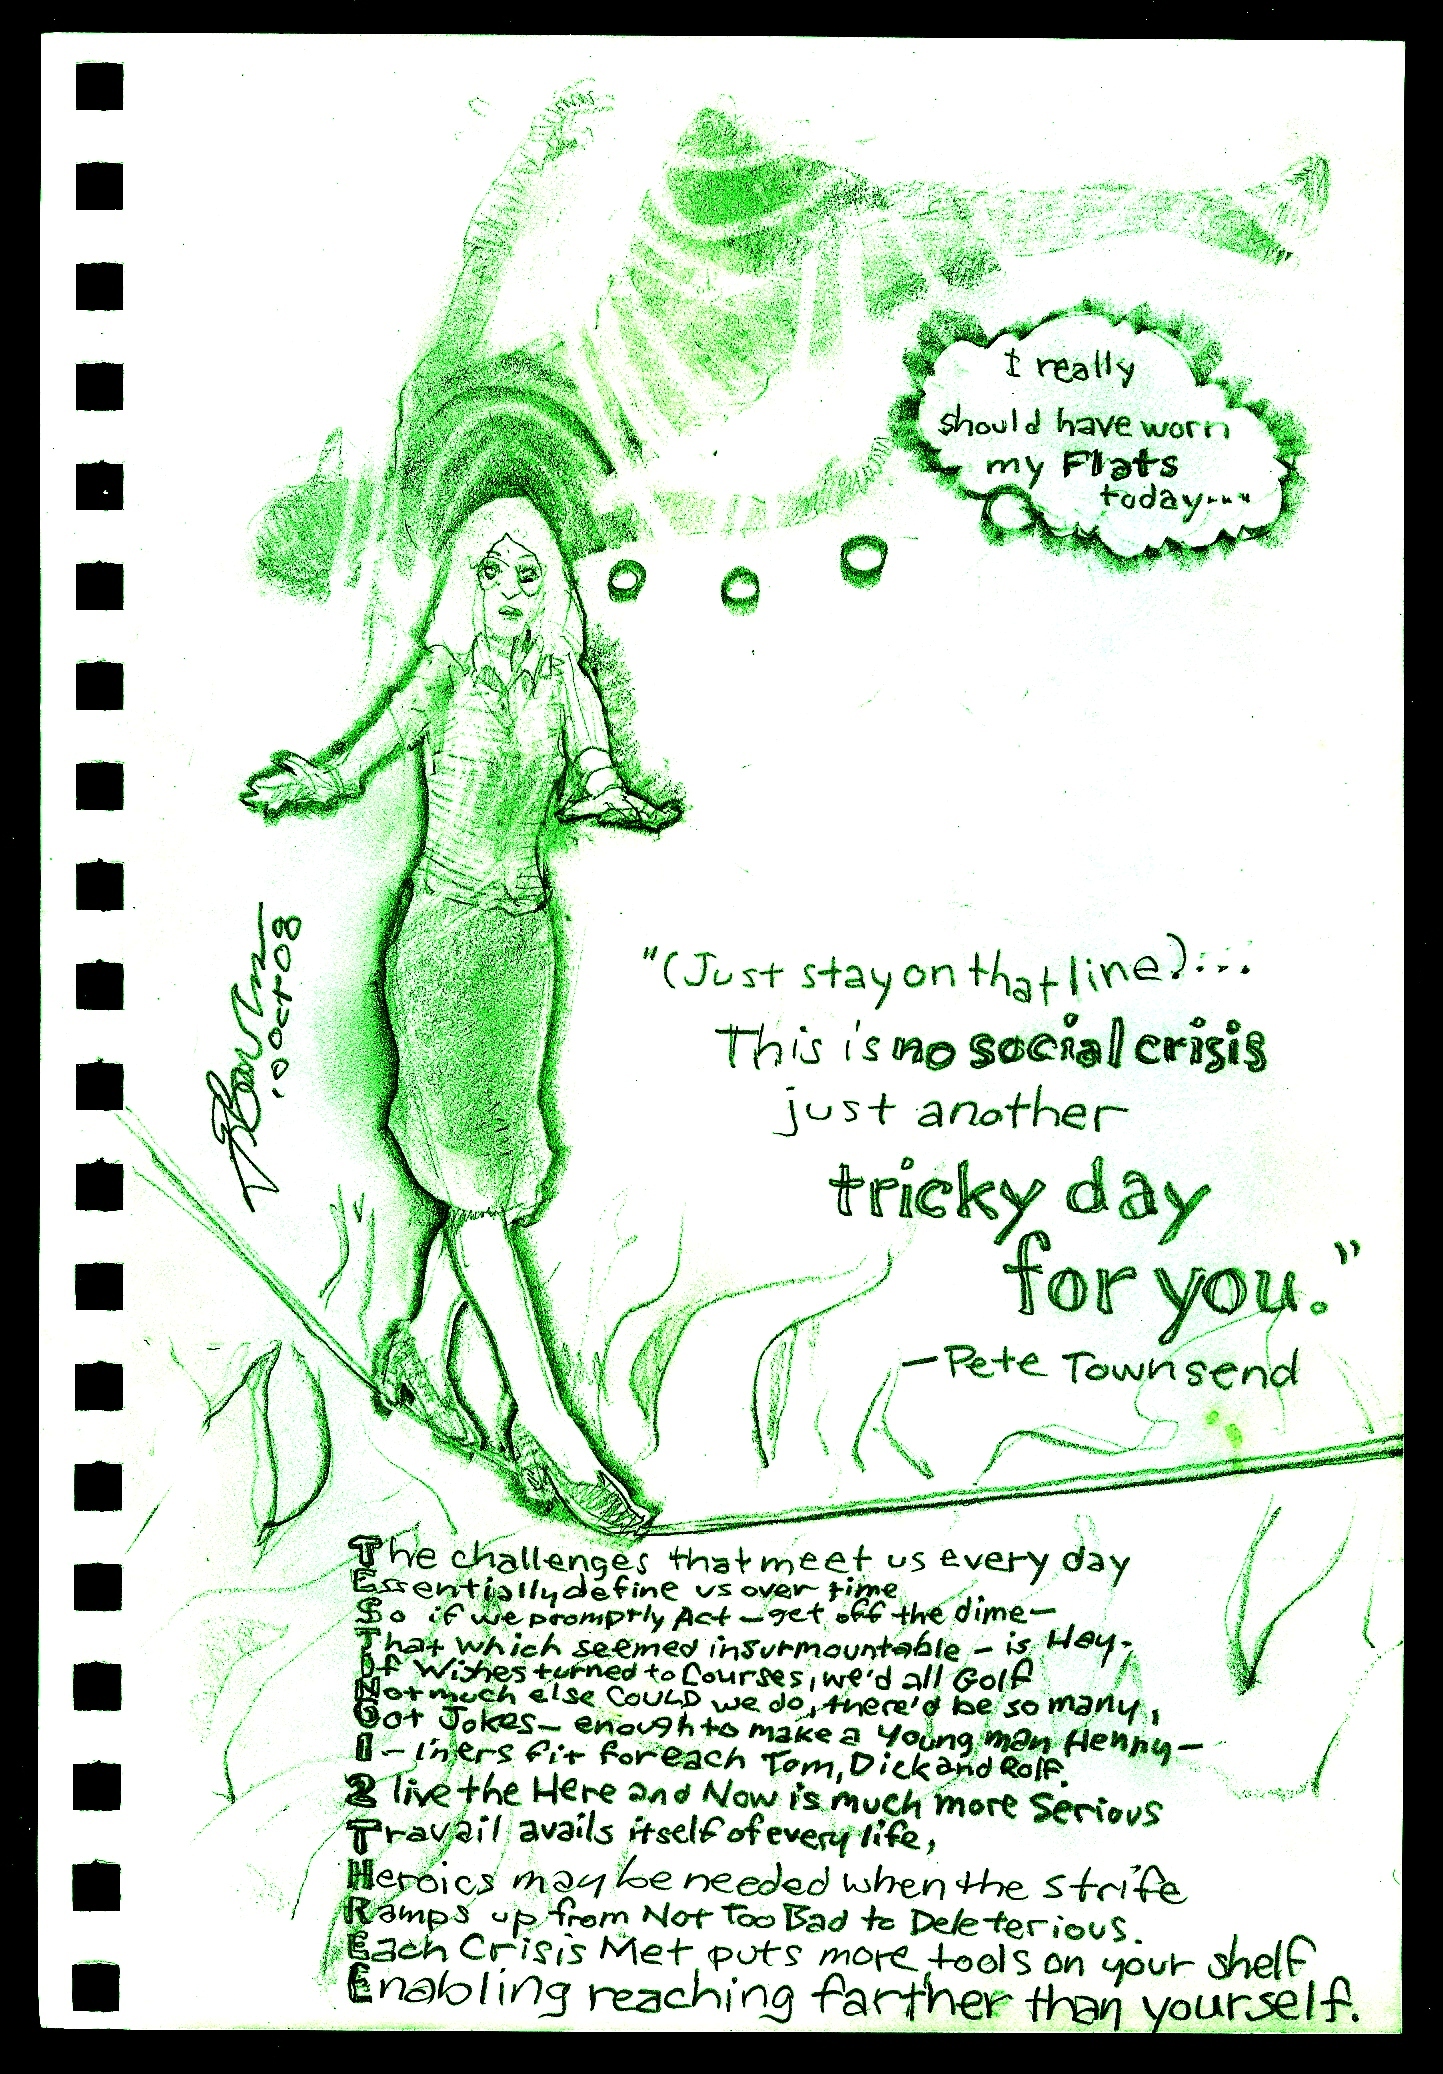 I really
should have worn
my Flats
today....
"(Just stay on that line)...
This is no social crisis
just another
tricky day
for you."
—Pete Townsend
10 Oct 08
The challenges that meet us every day
Essentially define us over time
So if we promptly Act — get off the dime—
That which seemed insurmountable — is Hay;
If Wishes turned to Courses, we'd all Golf
Not much else COULD we do, there'd be so many,
Got Jokes— enough to make a young man Henny—
1 - liners fit for each Tom, Dick and Rolf.
2 live the Here and Now is much more Serious
Travail avails itself of every life,
Heroics may be needed when the strife
Ramps up from Not Too Bad to Deleterious.
Each Crisis Met puts more tools on your shelf
Enabling reaching farther than yourself.